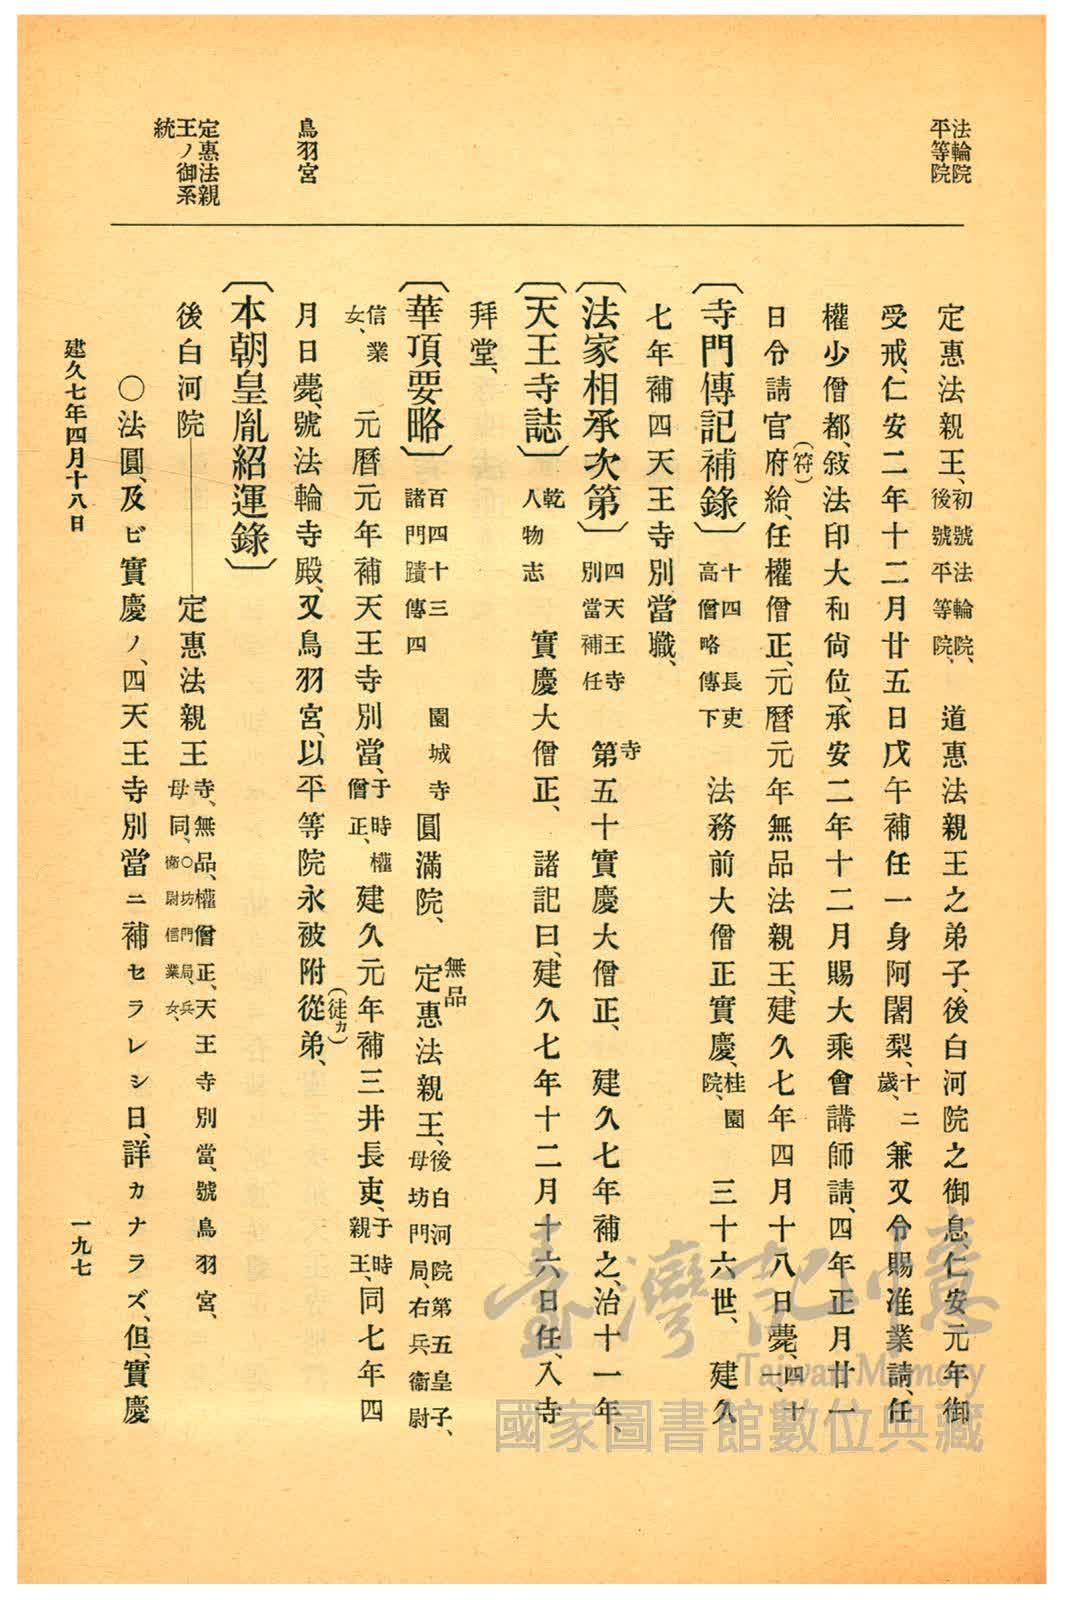 法輪院
平等院
鳥羽宮
定惠法親
王ノ御系
統
定惠法親王、初號法輪院、後號平等院、道惠法親王之弟子、後白河院之御息、仁安元年御
受戒、仁安二年十二月廿五日戊午補任一身阿闍梨、十二歲、兼又令賜准業請、任
權少僧都、敍法印大和尙位、承安二年十二月賜大乘會講師請、四年正月廿一
日令請官府(符)給、任權僧正、元曆元年無品法親王、建久七年四月十八日薨、四十一、
〔寺門傳記補錄〕十四長吏高僧略傳下 法務前大僧正實慶、桂園院、三十六世、建久
七年補四天王寺別當職、
〔法家相承次第〕四天王寺別當補任 第五十實慶大僧正、寺 建久七年補之、治十一年、
〔天王寺誌〕乾人物志 實慶大僧正、諸記曰、建久七年十二月十六日任、入寺
拜堂、
〔華頂要略〕百四十三諸門蹟傳四 園城寺圓滿院、 無品定惠法親王、後白河院第五皇子、母坊門局、右兵衞尉
信業女、 元曆元年補天王寺別當、于時權僧正、建久元年補三井長吏、于時親王、同七年四
月日薨、號法輪寺殿、又鳥羽宮、以平等院永被附從(徒カ)弟、
〔本朝皇胤紹運錄〕
後白河院――定惠法親王寺、無品、權僧正、天王寺別當、號鳥羽宮、母同、○坊門局、兵衞尉信業女、
○法圓、及ビ實慶ノ、四天王寺別當ニ補セラレシ日、詳カナラズ、但、實慶
建久七年四月十八日
一九七
臺灣記憶
Taiwan Memory
國家圖書館數位典藏